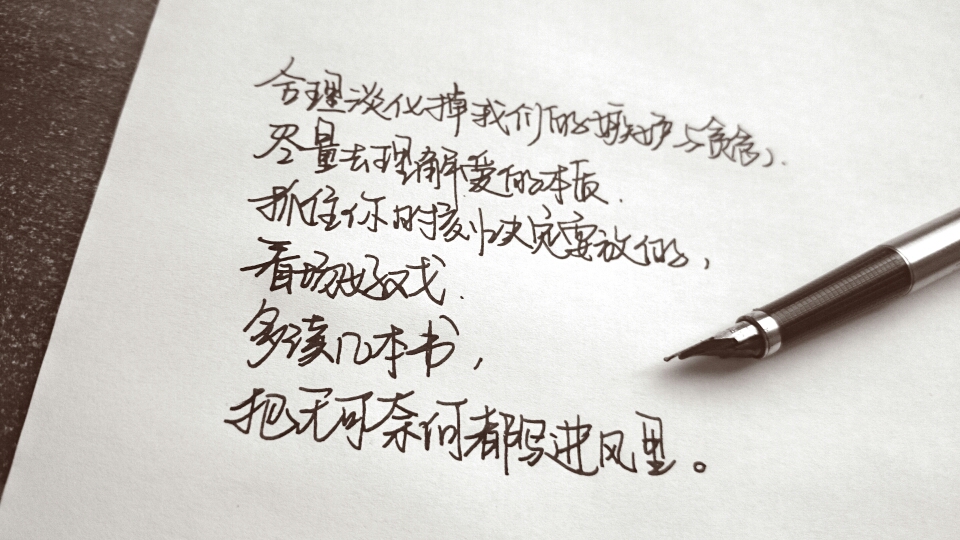 合理淡化掉我们的嫉妒与贪念，
尽量去理解爱的本质.
抓住你时刻决定要放的，
看场好戏.
多读几本书，
把无可奈何都写进风里。